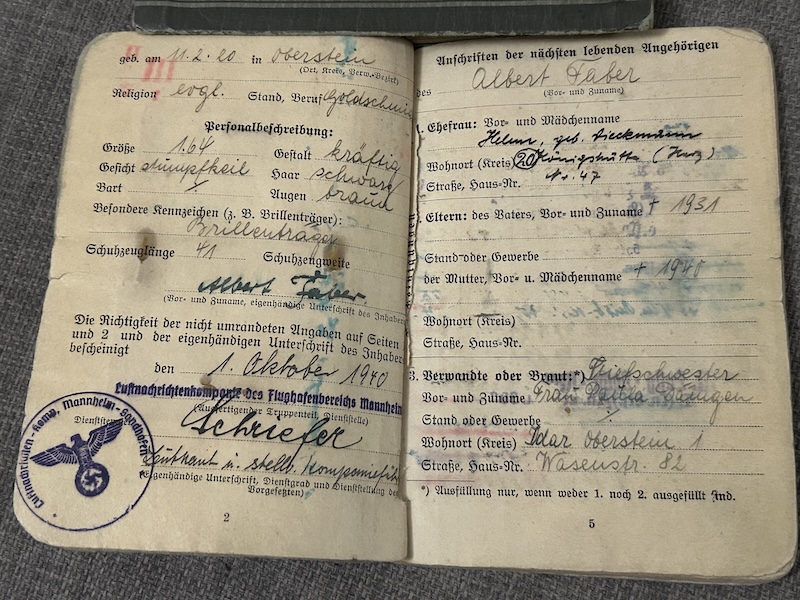 geb. am 11.2.20 in Oberstein
(Ort, Kreis, Verw.-Bezirk)
Religion evgl. Stand, Beruf Goldschmie
Personalbeschreibung:
Größe 1.64 Gestalt kräftig
Gesicht Haar schwarz
Bart Augen braun
Besondere Kennzeichen (z. B. Brillenträger):
Brillenträger
Schuhzeuglänge 41 Schuhzeugweite
Albert Faber.
(Vor- und Zuname, eigenhändige Unterschrift des Inhabers
Die Richtigkeit der nicht umrandeten Angaben auf Seiten
und 2 und der eigenhändigen Unterschrift des Inhabers
bescheinigt
den 1. Oktober 1940
Luftnachrichtenkompanie des Flughafenbereichs Mannheim
(Ausfertigender Truppenteil, Dienststelle)
Schriefer
Leutnant u. stellv. Kompaniefüh
(Eigenhändige Unterschrift, Dienstgrad und Dienststellung des
Vorgesetzten)
2
Anschriften der nächsten lebenden Angehörigen
des Albert Faber
(Vor- und Zuname)
1. Ehefrau: Vor- und Mädchenname
geb. Dieckmann
Wohnort (Kreis) 20 Königshütte (Harz)
Straße, Haus-Nr. Nr. 47
2. Eltern: des Vaters, Vor- und Zuname † 1931
Stand oder Gewerbe
der Mutter, Vor- u. Mädchenname † 1940
Wohnort (Kreis)
Straße, Haus-Nr.
3. Verwandte oder Braut:*) Stiefschwester
Vor- und Zuname Frau
Stand oder Gewerbe
Wohnort (Kreis) Idar Oberstein 1
Straße, Haus-Nr. Wasenstr. 82
*) Ausfüllung nur, wenn weder 1. noch 2. ausgefüllt sind.
5